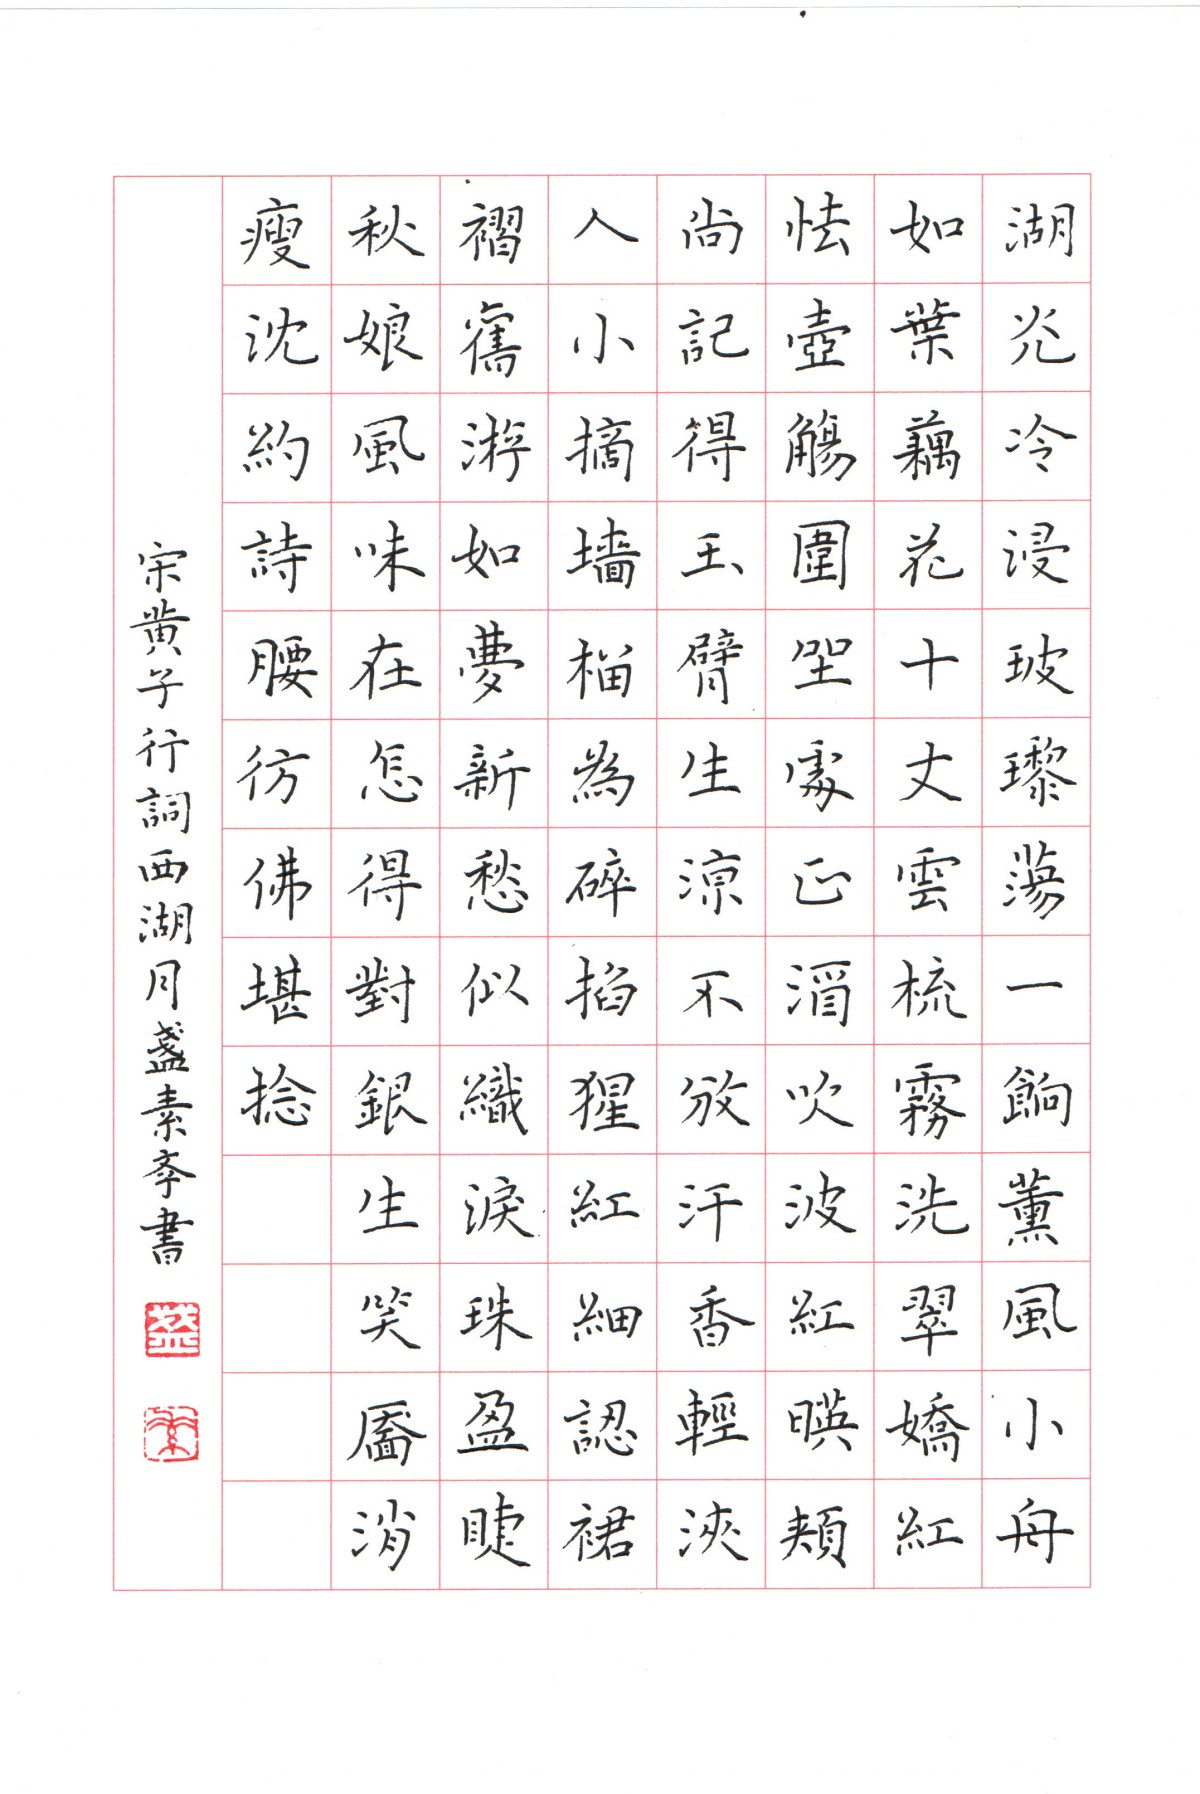 湖光冷浸玻瓈蕩一餉薰風小舟
如葉藕花十丈雲梳霧洗翠嬌紅
怯壺觴圍坐處正湏吹波紅暎頰
尚記得玉臂生涼不放汗香輕浹
人小摘墻榴為碎掐猩紅細認裙
褶舊游如夢新愁似織淚珠盈睫
秋娘風味在怎得對銀生笑靨消
瘦沈約詩腰彷佛堪捻
宋黄子行詞西湖月盞素亭書